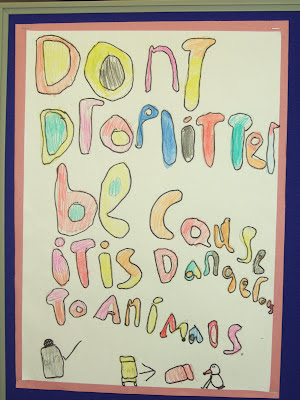 DonT
Droplitter
be Cause
itis Dangerous
To AniMals.